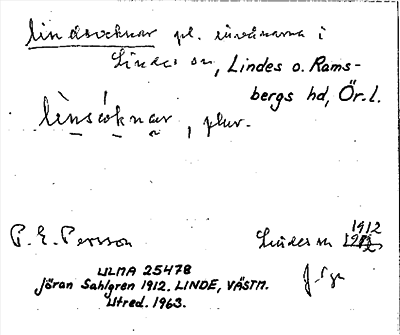 lindsocknar pl. invånarna i
Lindes sn, Lindes o. Rams-
bergs hd, Ör. l.
lènsóknar, plur.
P. E. Persson Lindes sn 1912
ULMA 25478
Jöran Sahlgren 1912. LINDE, VÄSTM.
Utred. 1963.